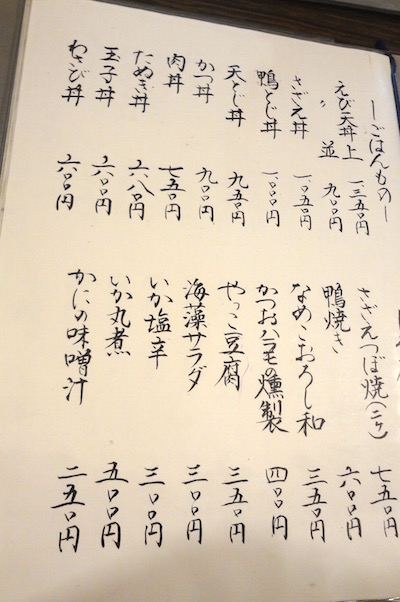 ーごはんものー
えび天丼 上 一、三五〇円
〃 並 九〇〇円
さざえ丼 一、〇五〇円
鴨とじ丼 一、〇〇〇円
天とじ丼 九五〇円
かつ丼 九〇〇円
肉丼 七五〇円
たぬき丼 六八〇円
玉子丼 六〇〇円
わさび丼 六〇〇円
さざえつぼ焼(二ケ) 七五〇円
鴨焼き 六〇〇円
なめこおろし和 三五〇円
かつおハラモの燻製 四〇〇円
やっこ豆腐 三五〇円
海藻サラダ 三〇〇円
いか塩辛 三〇〇円
いか丸煮 五〇〇円
かにの味噌汁 二五〇円